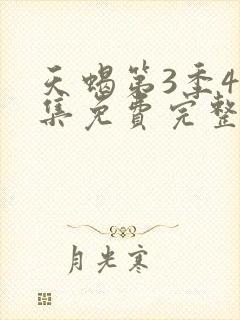 天蝎第3季4
集免费完整
月光寒